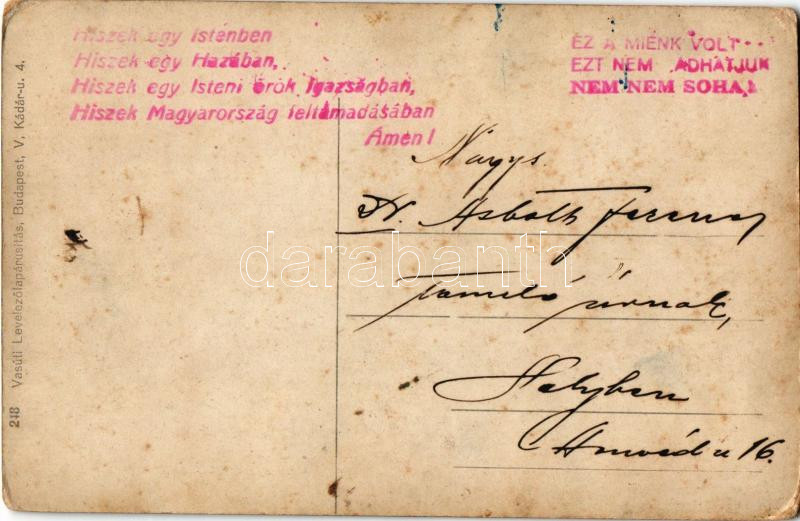 Hiszek egy Istenben
Hiszek egy Hazában,
Hiszek egy Isteni örök Igazságban,
Hiszek Magyarország feltámadásában
Ámen!
EZ A MIÉNK VOLT
EZT NEM ADHATJUK
NEM NEM SOHA!
Nagys.
Dr. Asbóth Ferenc
úrnak,
Helyben
u 16.
darabanth
218 Vasúti Levelezőlapárusítás, Budapest, V, Kádár-u. 4.